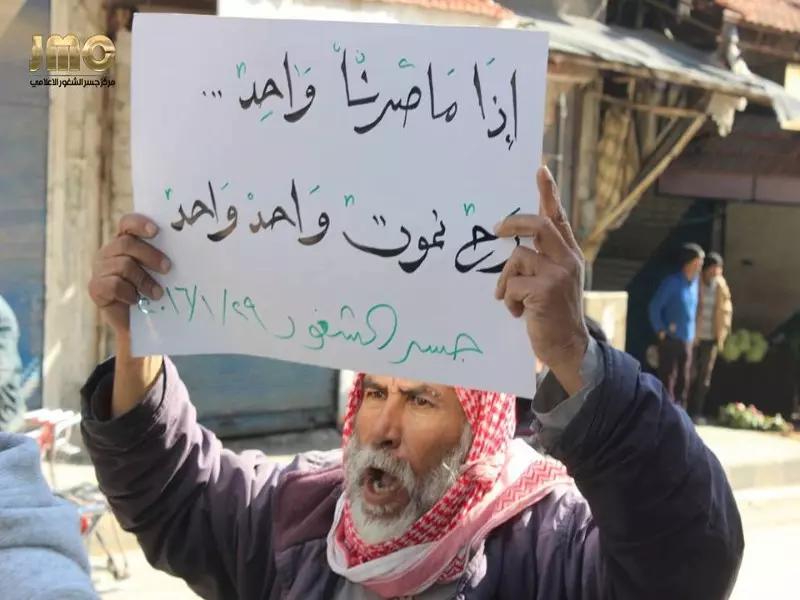 JMC
مركز جسر الشغور الاعلامي
إِذَا مَا صرنَا وَاحِد ...
رَح نموت وَاحد وَاحد
جسر الشغور ٢٠١٦/١/٢٩